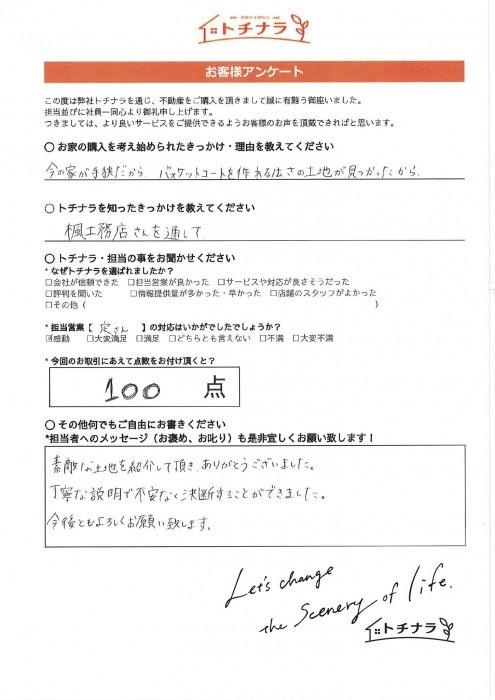 トチナラ
お客様アンケート
この度は弊社トチナラを通じ、不動産をご購入を頂きまして誠に有難う御座いました。
担当並びに社員一同心より御礼申し上げます。
つきましては、より良いサービスをご提供できるようお客様のお声を頂戴できればと思います。
〇 お家の購入を考え始められたきっかけ・理由を教えてください
今の家が手狭だから。バスケットコートを作れる広さの土地が見つかったから。
〇 トチナラを知ったきっかけを教えてください
楓工務店さんを通して
〇 トチナラ・担当の事をお聞かせください
* なぜトチナラを選ばれましたか?
□会社が信頼できた □担当営業が良かった □サービスや対応が良さそうだった
□評判を聞いた □情報提供量が多かった・早かった □店舗のスタッフがよかった
□その他 ( )
* 担当営業【 定さん 】の対応はいかがでしたでしょうか?
☑感動 □大変満足 □満足 □どちらとも言えない □不満 □大変不満
* 今回のお取引にあえて点数をお付け頂くと?
100 点
〇 その他何でもご自由にお書きください
*担当者へのメッセージ(お褒め、お叱り)も是非宜しくお願い致します!
素敵な土地を紹介して頂き、ありがとうございました。
丁寧な説明で不安なく決断することができました。
今後ともよろしくお願い致します。
Let's change
the Scenery of life.
トチナラ